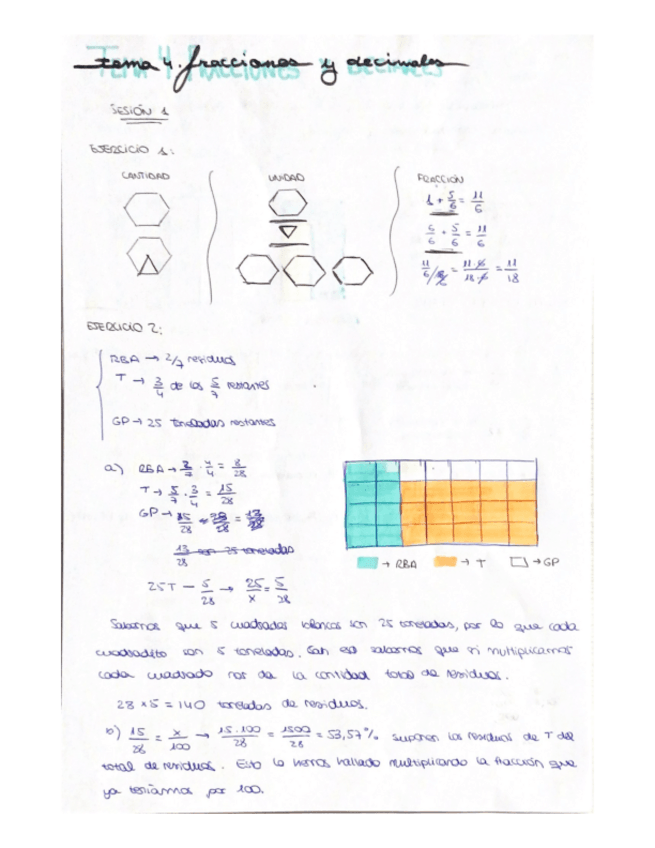 Tema 4. fracciones y decimales
SESIÓN 1
EJERCICIO 1:
CANTIDAD UNIDAD FRACCIÓN
1 + 5/6 = 11/6
6/6 + 5/6 = 11/6
11/6 / = 11·6/18·6 = 11/18
EJERCICIO 2:
RBA → 2/7 residuos
T → 3/4 de los 5/7 restantes
GP → 25 toneladas restantes
a) RBA → 2/7 · 4/4 = 8/28
T → 5/7 · 3/4 = 15/28
GP →
13/28 son 25 toneladas
→ RBA → T → GP
25T — 5/28 → 25/x = 5/28
Sabemos que 5 cuadrados blancos son 25 toneladas, por lo que cada
cuadradito son 5 toneladas. Con eso sabemos que si multiplicamos
cada cuadrado nos da la cantidad total de residuos.
28 × 5 = 140 toneladas de residuos.
b) 15/28 = x/100 → 15·100/28 = 1500/28 = 53,57% suponen los residuos de T del
total de residuos. Esto lo hemos hallado multiplicando la fracción que
ya teníamos por 100.